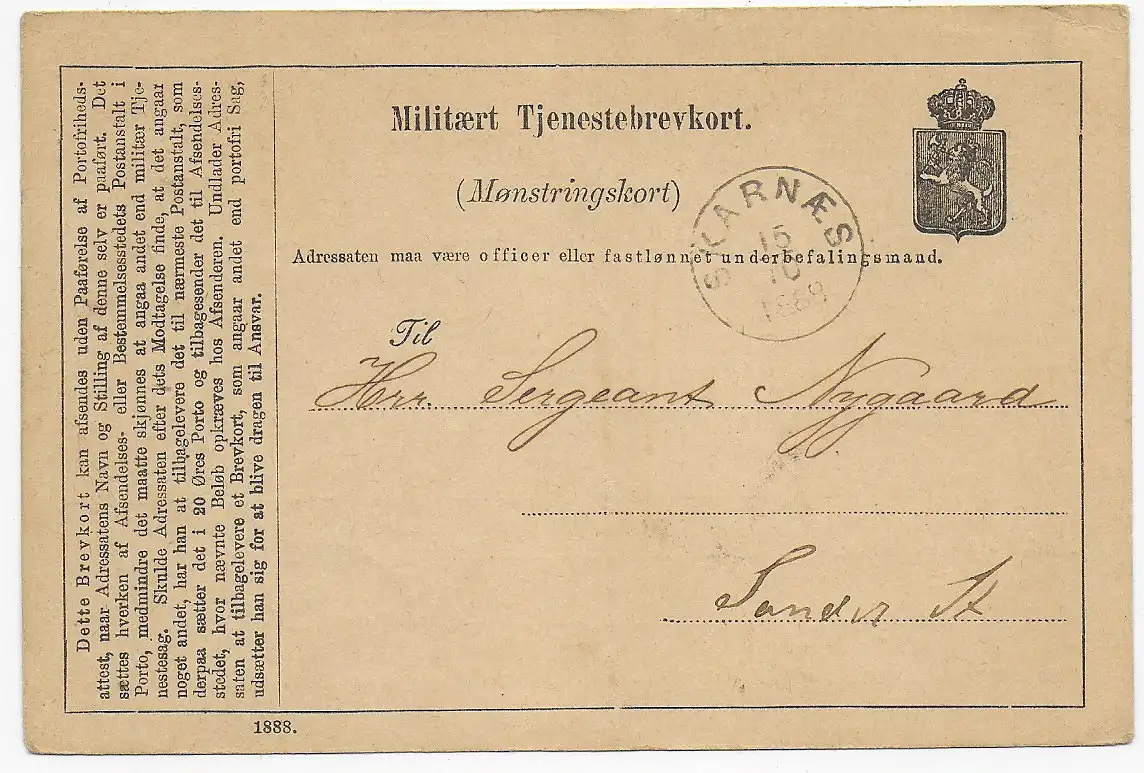 Dette Brevkort kan afsendes uden Paaførelse af Portofriheds-
attest, naar Adressatens Navn og Stilling af denne selv er paaført. Det
sættes hverken af Afsendelses- eller Bestemmelsesstedets Postanstalt i
Porto, medmindre det maatte skjønnes at angaa andet end militær Tje-
nestesag. Skulde Adressaten efter dets Modtagelse finde, at det angaar
noget andet, har han at tilbagelevere det til nærmeste Postanstalt, som
derpaa sætter det i 20 Øres Porto og tilbagesender det til Afsendelses-
stedet, hvor nævnte Beløb opkræves hos Afsenderen. Undlader Adres-
saten at tilbagelevere et Brevkort, som angaar andet end portofri Sag,
udsætter han sig for at blive dragen til Ansvar.
Militært Tjenestebrevkort.
(Mønstringskort)
SKARNÆS
15
10
1889
Adressaten maa være officer eller fastlønnet underbefalingsmand.
Til
Hrr. Sergeant Nygaard
Sander St
1888.